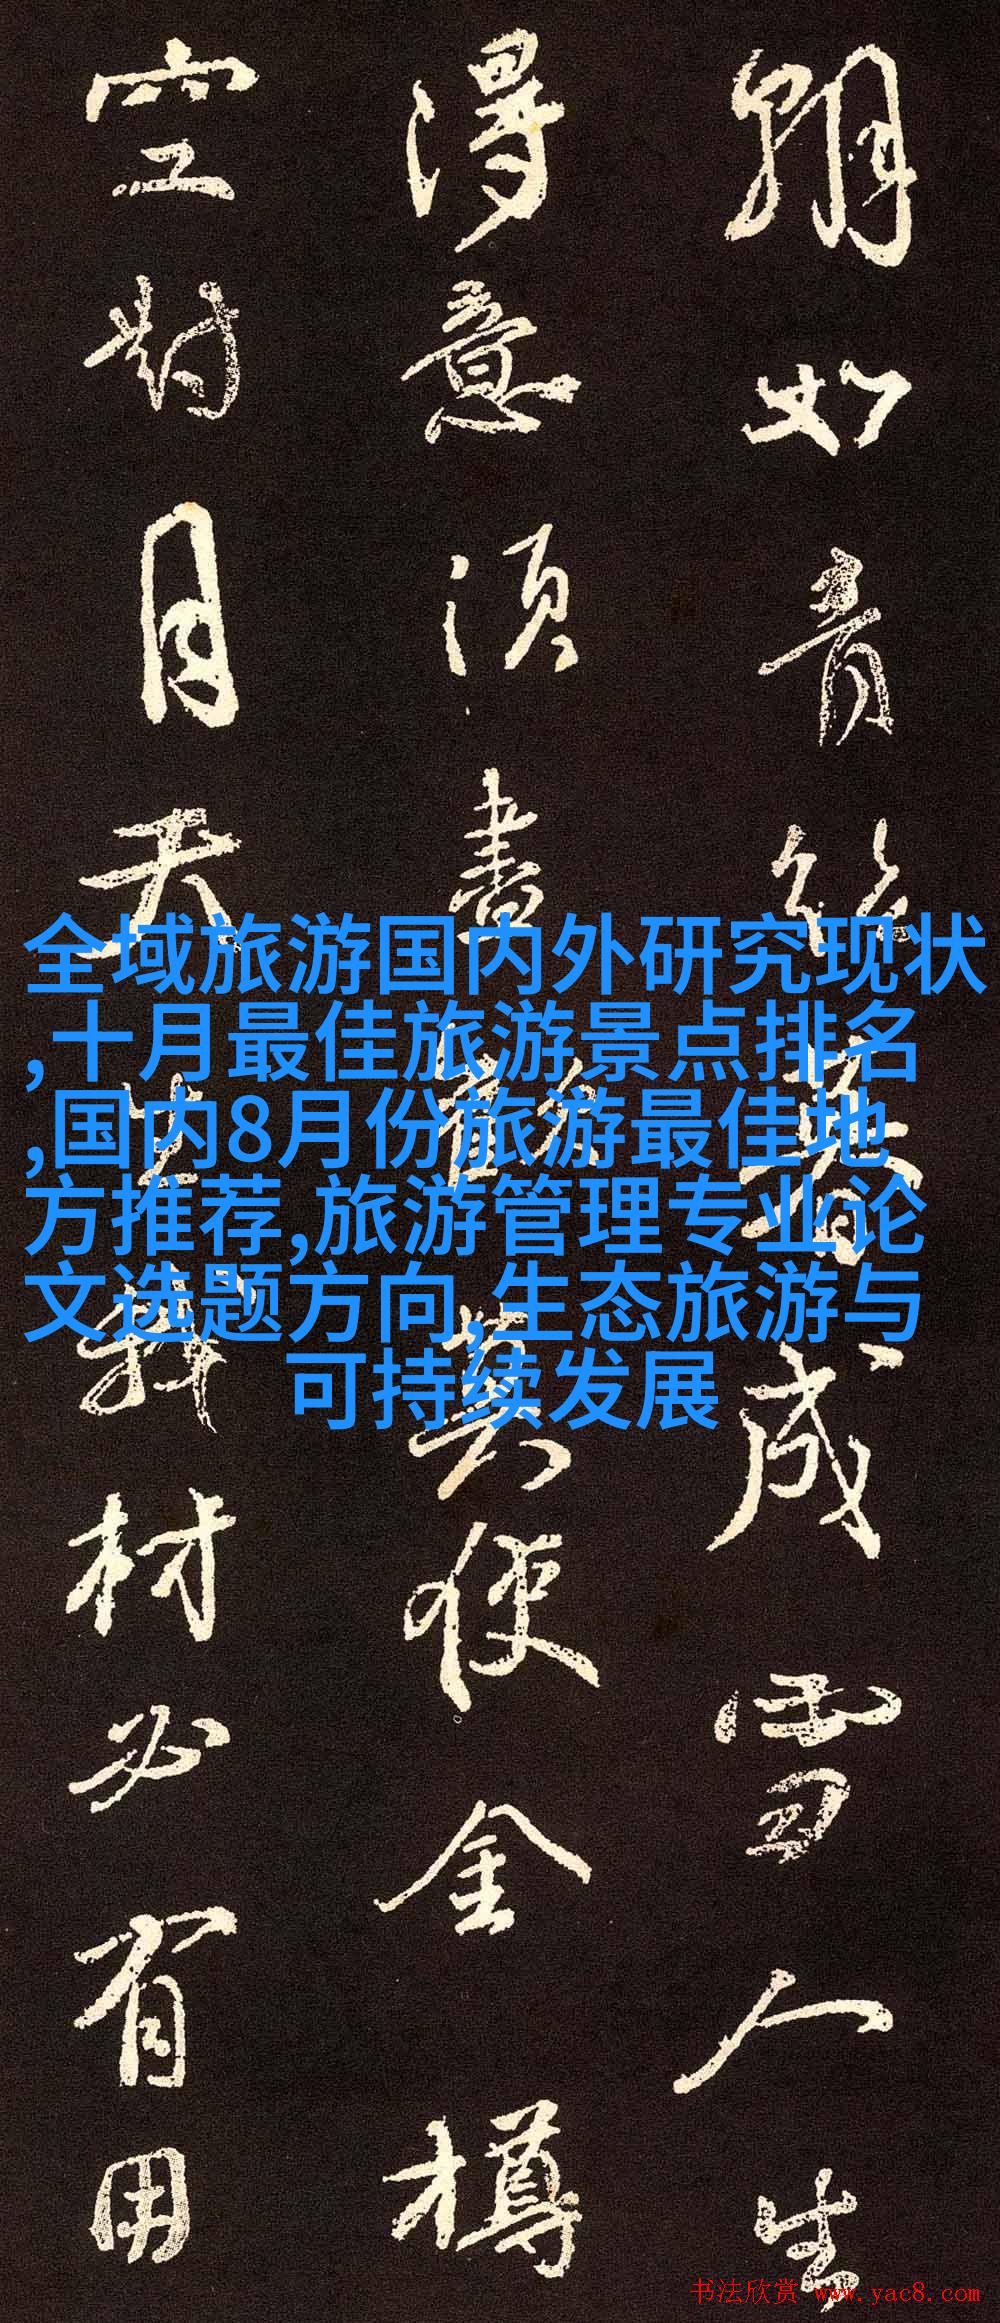 朝如青絲暮成雪人生
得意須盡歡莫使金樽
空對月天生我材必有用
全域旅游国内外研究现状
,十月最佳旅游景点排名
,国内8月份旅游最佳地
方推荐,旅游管理专业论
文选题方向,生态旅游与
可持续发展
书法欣赏 www.yac8.com